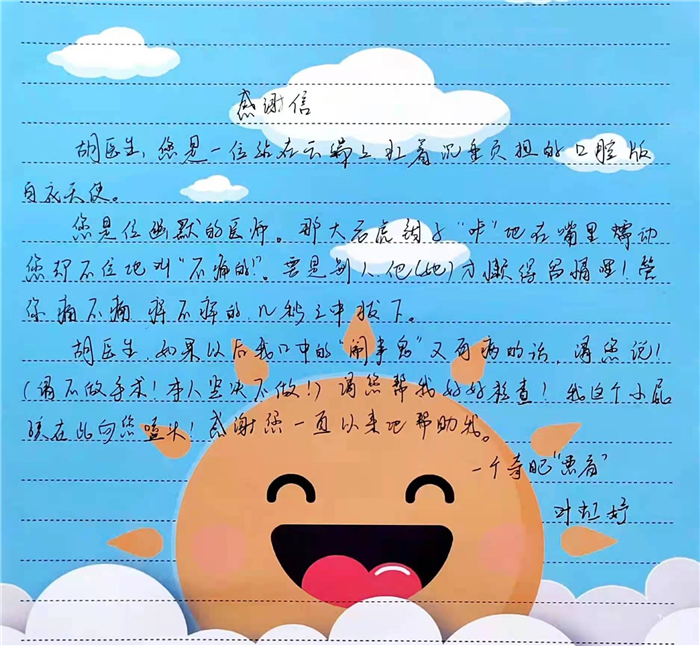 感谢信
胡医生,您是一位站在云端上扛着沉重负担的口腔版
白衣天使。
您是位幽默的医师。那大石虎钳子"咔"地在嘴里转动
您却不住地叫"不痛的!"。要是别人,他(她)才懒得留情哩!管
你痛不痛 痒不痒的,几秒之中拔下。
胡医生,如果以后我口中的"闹事鬼"又再病的话,请您说!
(请不做手术!本人坚决不做!)请您帮我好好检查!我这个小屁
孩在此向您磕头!感谢您一直以来地帮助我。
一个奇肥"患者"
叶